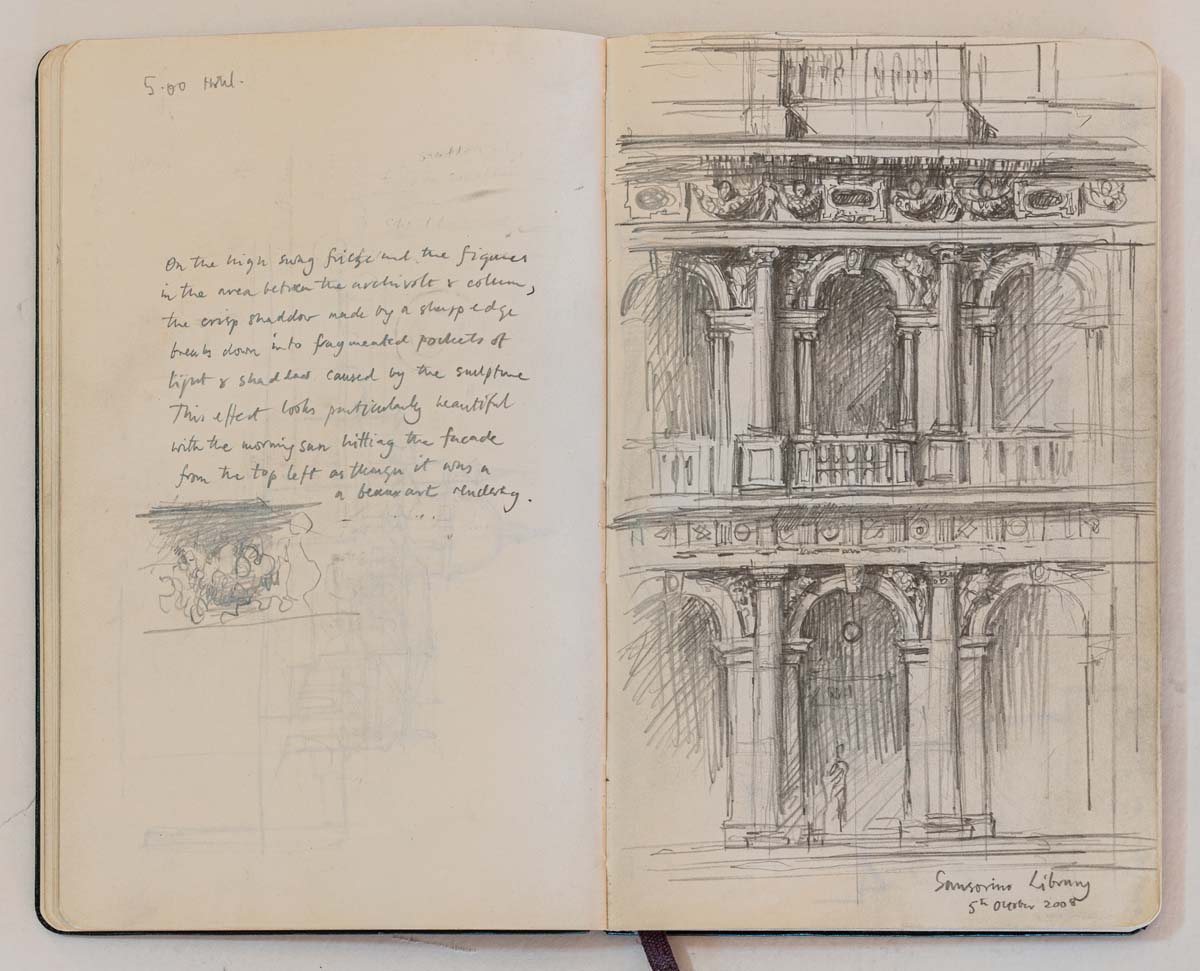 5.00 Hotel.
On the high swag frieze and the figures
in the area between the archivolt & column,
the crisp shaddow made by a sharp edge
breaks down into fragmented pockets of
light & shaddow caused by the sculpture
This effect looks particularly beautiful
with the morning sun hitting the facade
from the top left as though it was a
a beaux art rendering.
Sansovino Library
5th October 2008